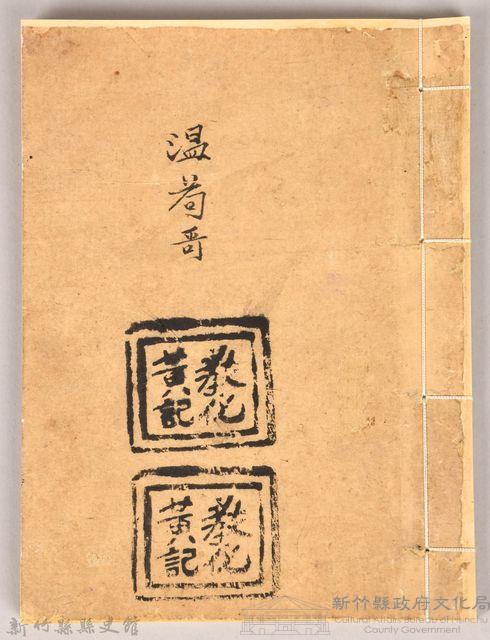 温苟哥
教化
黃記
教化
黃記
新竹縣縣史館
新竹縣政府文化局
Cultural Affairs Bureau of Hsinchu
County Government